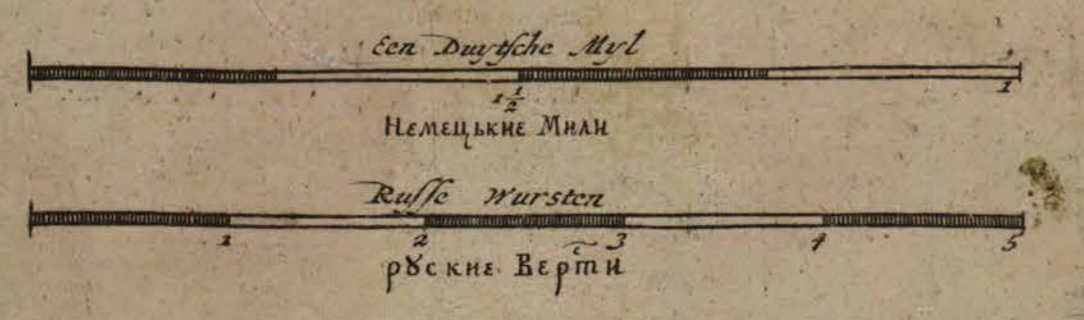 Een Duytsche Myl
1 1/2 1
Немецькие Мили
Russe Wursten
1 2 3 4 5
рꙋские Версти